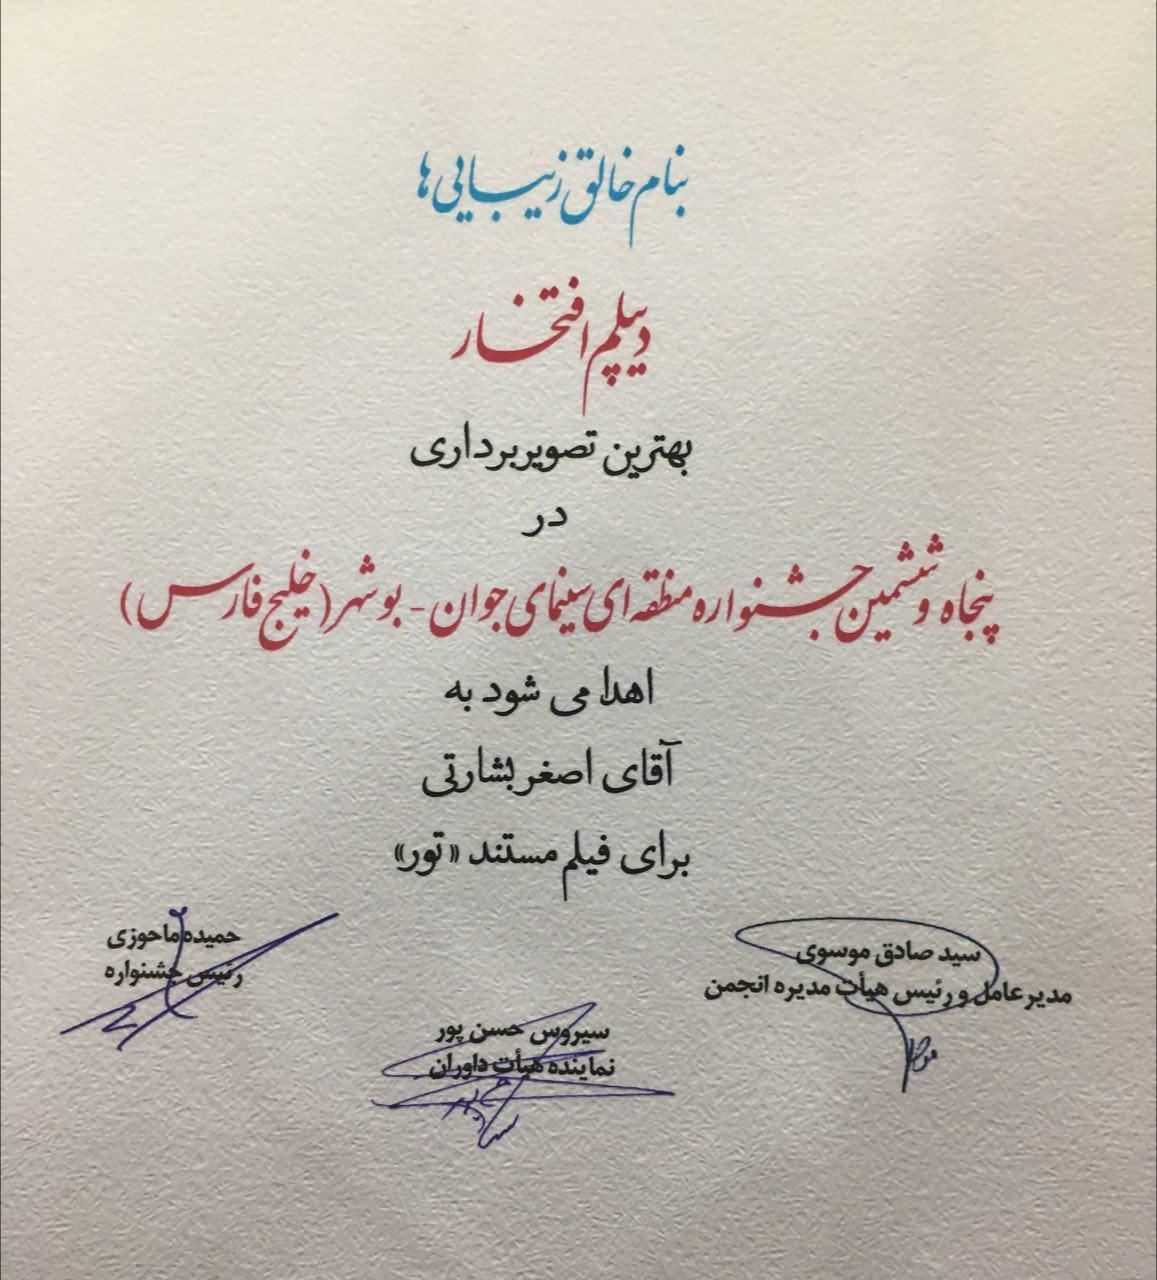 بنام خالق زیبایی ها
دیپلم افتخار
بهترین تصویربرداری
در
پنجاه و ششمین جشنواره منطقه ای سینمای جوان - بوشهر (خلیج فارس)
اهدا می شود به
آقای اصغر بشارتی
برای فیلم مستند «تور»
سید صادق موسوی
مدیرعامل و رئیس هیأت مدیره انجمن
حمیده ماحوزی
رئیس جشنواره
سیروس حسن پور
نماینده هیأت داوران